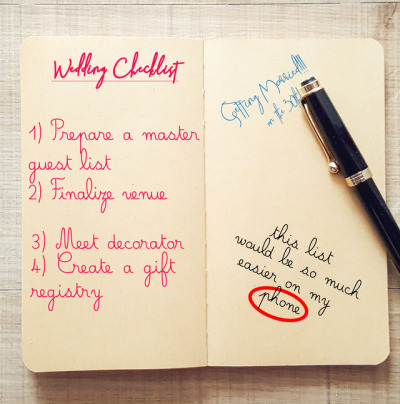 Wedding Checklist
1) Prepare a master
guest list
2) Finalize venue
3) Meet decorator
4) Create a gift
registry
Getting Married!!!
on the 30th!
this list
would be so much
easier on my
phone